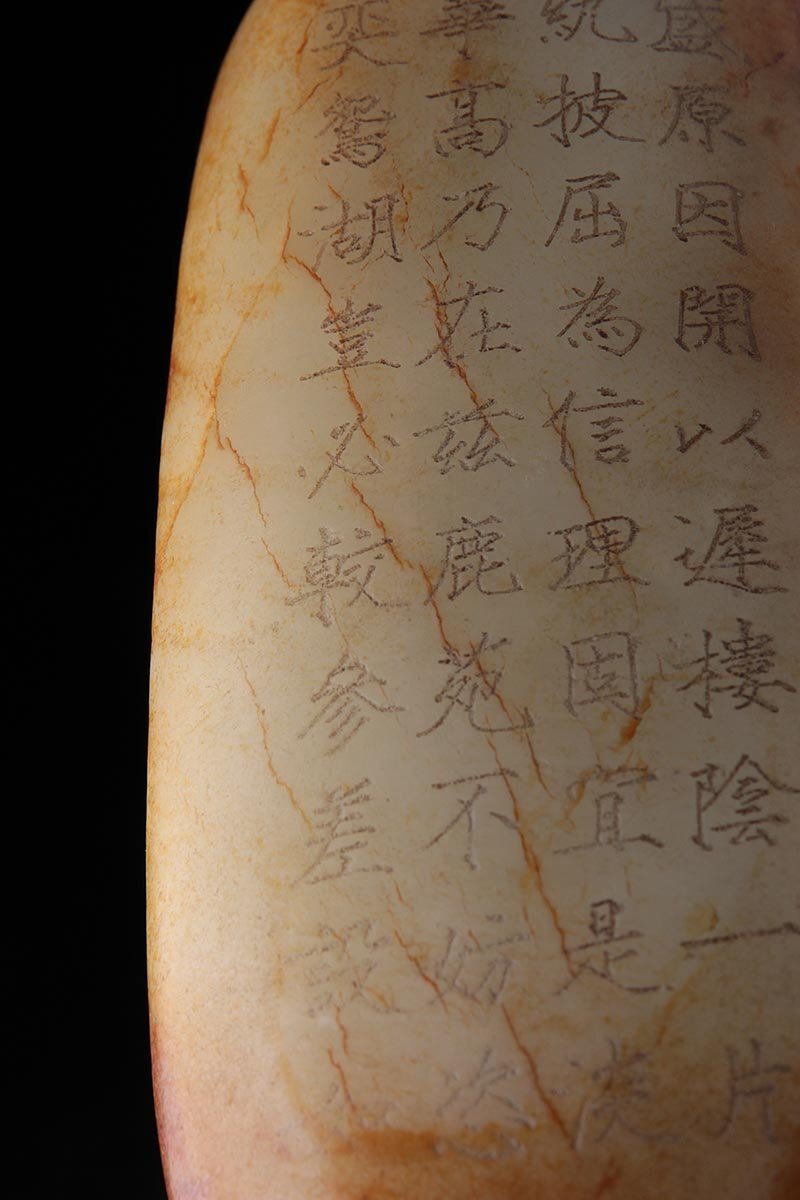 盛原因開以遲樓陰一片
紈披屈為信理固宜是淡
華高乃在茲鹿苑不妨恣
奕鴛湖豈必較參差設